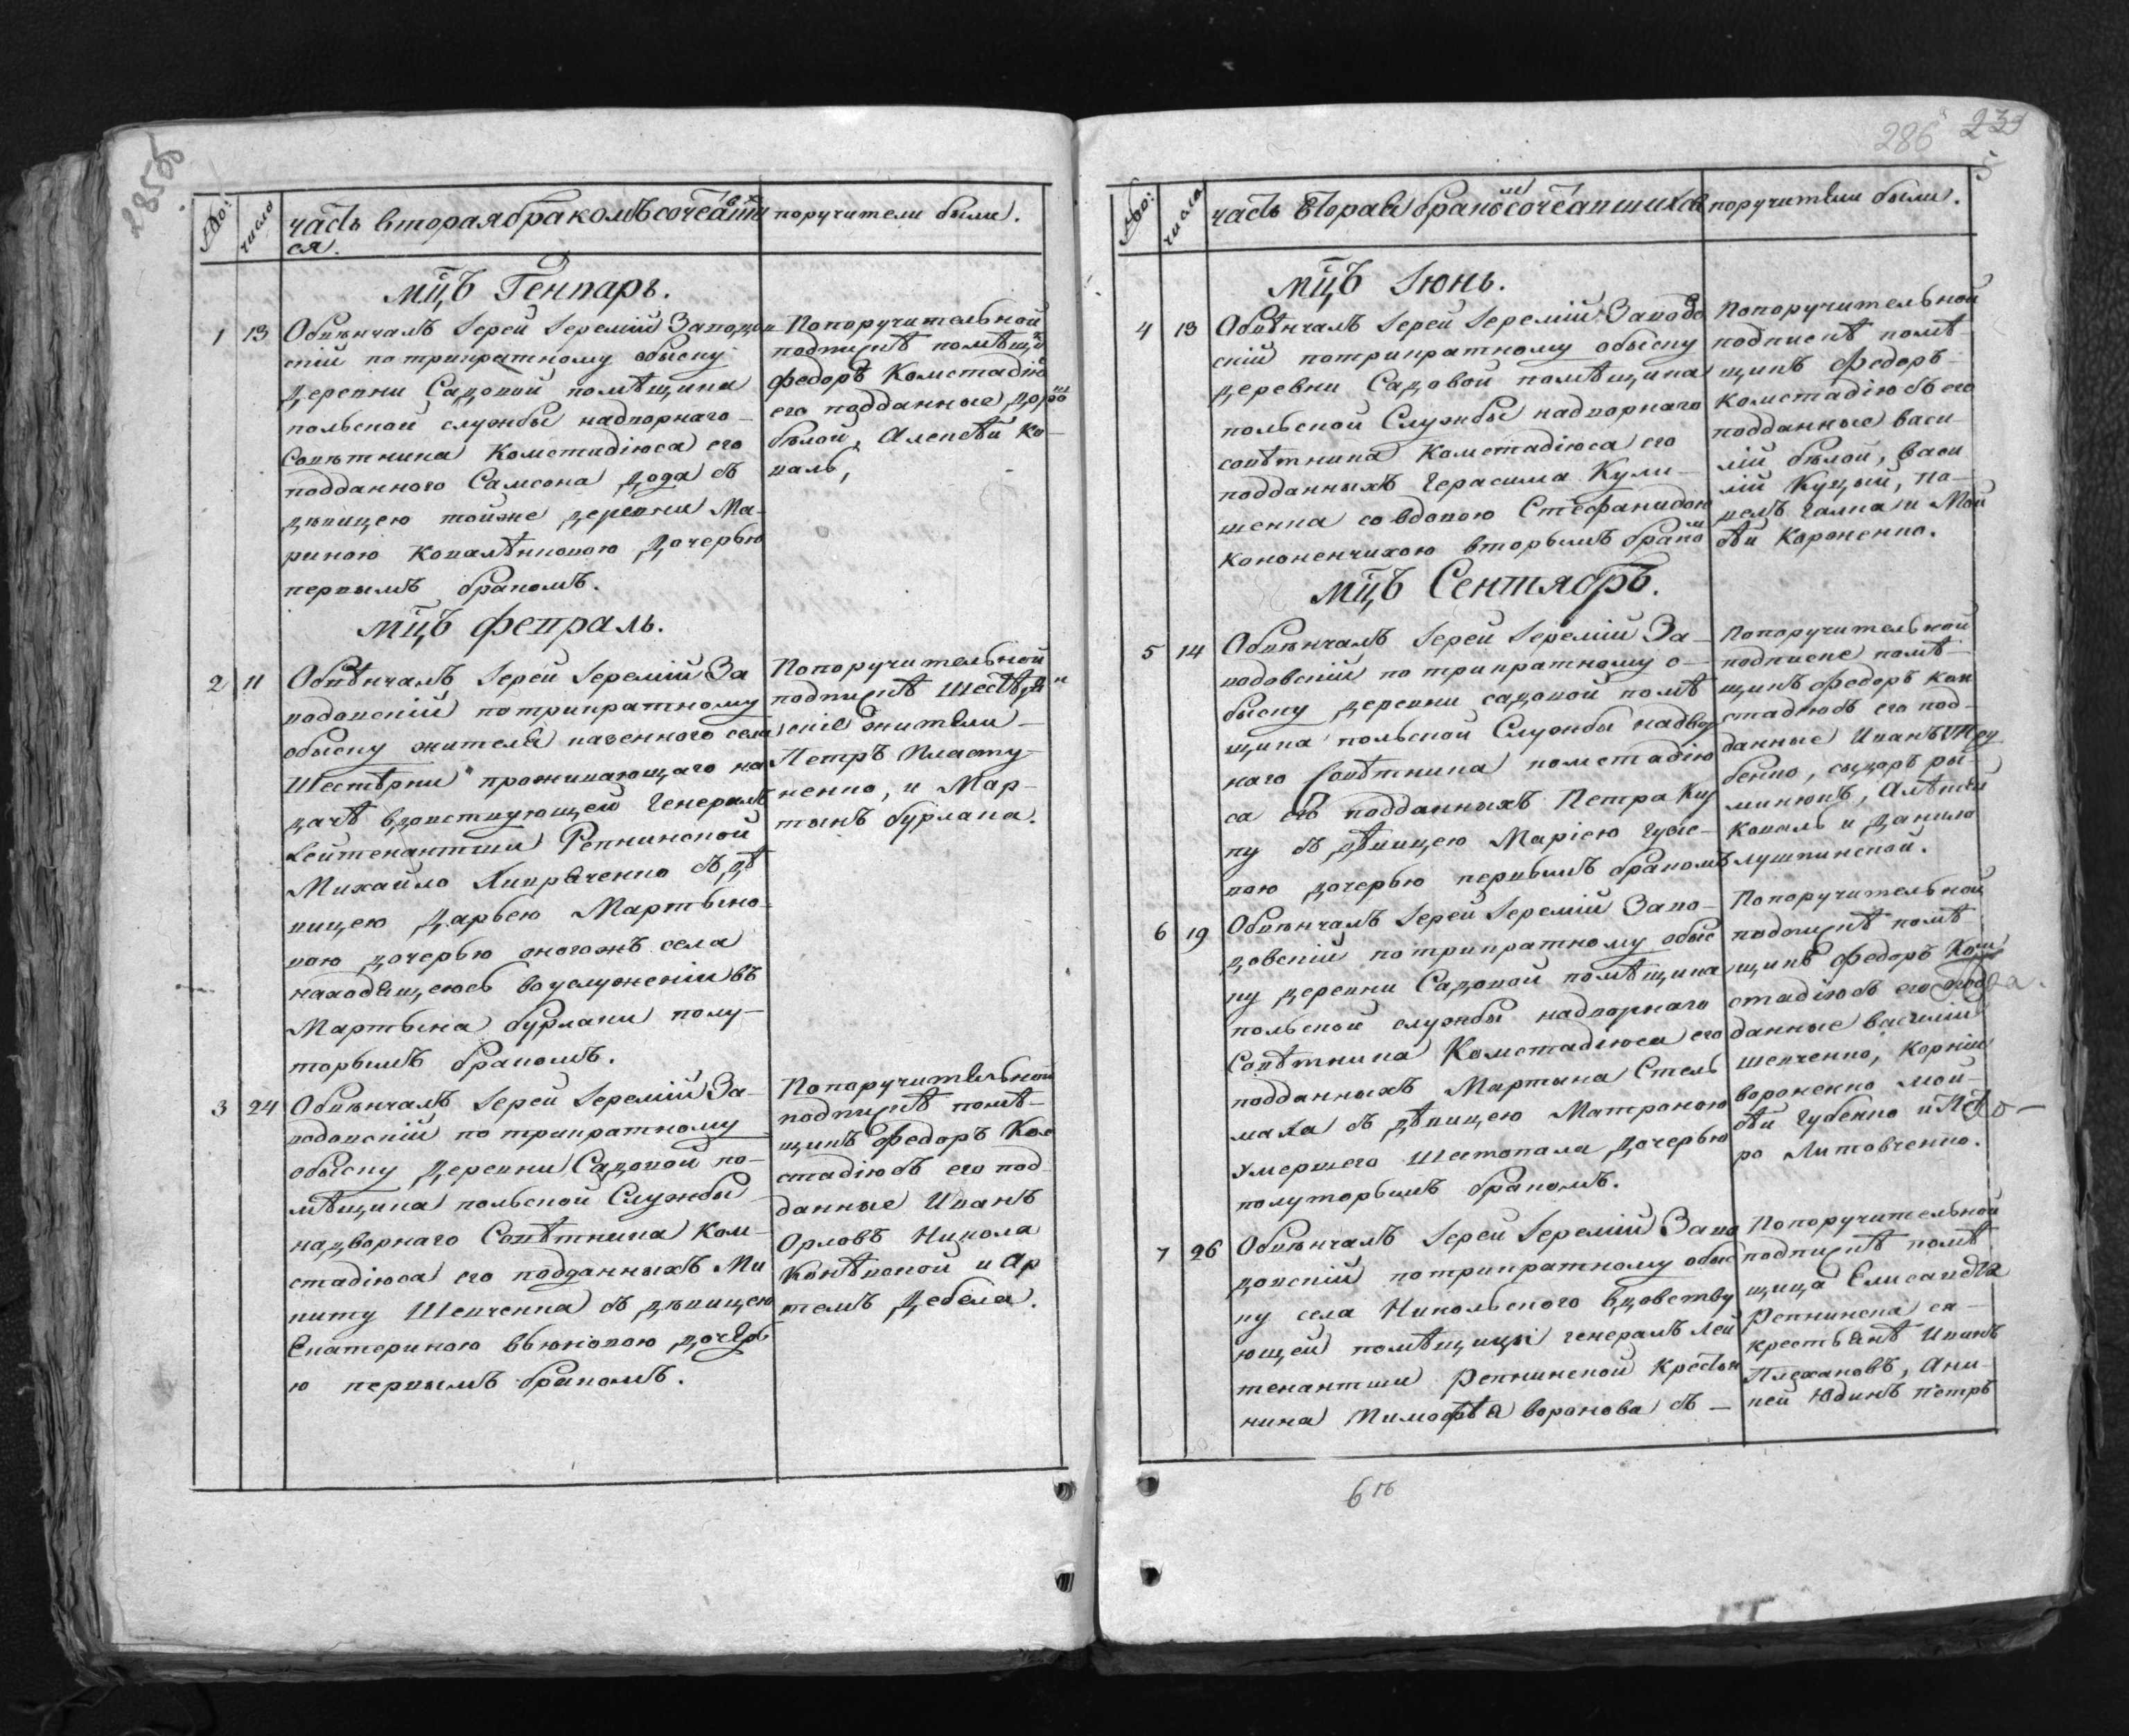 285об
№: число часть вторая бракомъ сочетавших
ся.
поручители были.
мцъ Генварь.
1 13 Обвѣнчалъ Іерей Іеремій Заводов
скій по трикратному обыску
деревни Садовой помѣщика
польской службы надворнаго
Совѣтника Комстадіюса его
подданного Самсона Дода съ
дѣвицею тойже деревни Ма-
риною Ковалѣнковою дочерью
первымъ бракомъ.
Попоручительной
подпискѣ помѣщикъ
Федоръ Комстадіюсъ
его подданные
бѣлой, Алексѣй Ко-
валь,
мцъ февраль.
2 11 Обвѣнчалъ Іерей Іеремій За
водовскій по трикратному
обыску жителя казенного села
Шестѣрни проживающаго на
дачѣ вдовствующей Генералъ
Лейтенантши Репнинской
Михайло Кипрѣченко съ дѣ
вицею Дарьею Мартыно-
вою дочерью оногожъ села
находящеюсь вуслуженіи въ
Мартына бурлаки полу-
торымъ бракомъ.
Попоручительной
подпискѣ Шестѣрн
скіе жители
Петръ Пласту-
ненко, и Мар-
тынъ бурлака.
3 24 Обвѣнчалъ Іерей Іеремій За-
водовскій по трикратному
обыску деревни Садовой по-
мѣщика польской Службы
надворнаго Совѣтника Ком-
стадіюса его подданныхъ Ми
киту Шевченка съ дѣвицею
Екатериною Вьюновою дочерь
ю первымъ бракомъ.
Попоручительной
подпискѣ помѣ-
щикъ Федоръ Ком
стадіюсъ его под-
данные Иванъ
Орловъ Никола
Конѣвской и Ар
темъ Дебела.
286 233
№: число часть вторая бракомъ сочетавшихся
поручители были.
мцъ Іюнь.
4 13 Обвѣнчалъ Іерей Іеремій Заводо
скій потрикратному обыску
деревни Садовой помѣщика
польской Службы надворнаго
совѣтника Комстадіюса его
подданныхъ Герасима Кули-
шенка со вдовою Стефанидою
Кононенчихою вторымъ бракомъ
Попоручительной
подпискѣ помѣ-
щикъ Федоръ
Комстадіюсъ его
подданные васи-
лій бѣлой, васи
лій Куцый, Па-
велъ Галка и Мой
сѣй Короненко.
мцъ Сентябрь.
5 14 Обвѣнчалъ Іерей Іеремій За-
водовскій по трикратному о-
быску деревни садовой помѣ
щика польской Службы надвор
наго Совѣтника комстадію
са его подданныхъ Петра Ку
цу съ дѣвицею Маріею Гусе-
вою дочерью первымъ бракомъ
Попоручительной
подписке помѣ-
щикъ Федоръ ком
стадіюсъ его под-
данные Иванъ Тру
бенко, сидоръ ры-
милюкъ, Алѣксѣй
Коваль и Данило
Лушпинской.
6 19 Обвѣнчалъ Іерей Іеремій Заво-
довскій потрикратному обыс
ку деревни Садовой помѣщика
польской службы надворнаго
Совѣтника Комстадіюса его
подданныхъ Мартина Стель
маха съ дѣвицею Матроною
умершего Шестопала дочерью
полуторымъ бракомъ.
Попоручительной
подпискѣ помѣ
щикъ Федоръ Ком
стадіюсъ его под
данные василій
шевченко, Корній
вороненко мой-
сѣй Губенко и Нѣдо-
ро Литовченко.
7 26 Обвѣнчалъ Іерей Іеремій Заво
довскій потрикратному обыс
ку села Никольского вдовству
ющей помѣщици генералъ Лей
тенантши Репнинской Крестья
нина Тимофѣя воронова съ —
Попоручительной
подпискѣ помѣ
щица Елисавѣта
Репнинска ея
крестьянѣ Иванъ
Плехановъ, Ани-
кей Юдинъ Петръ